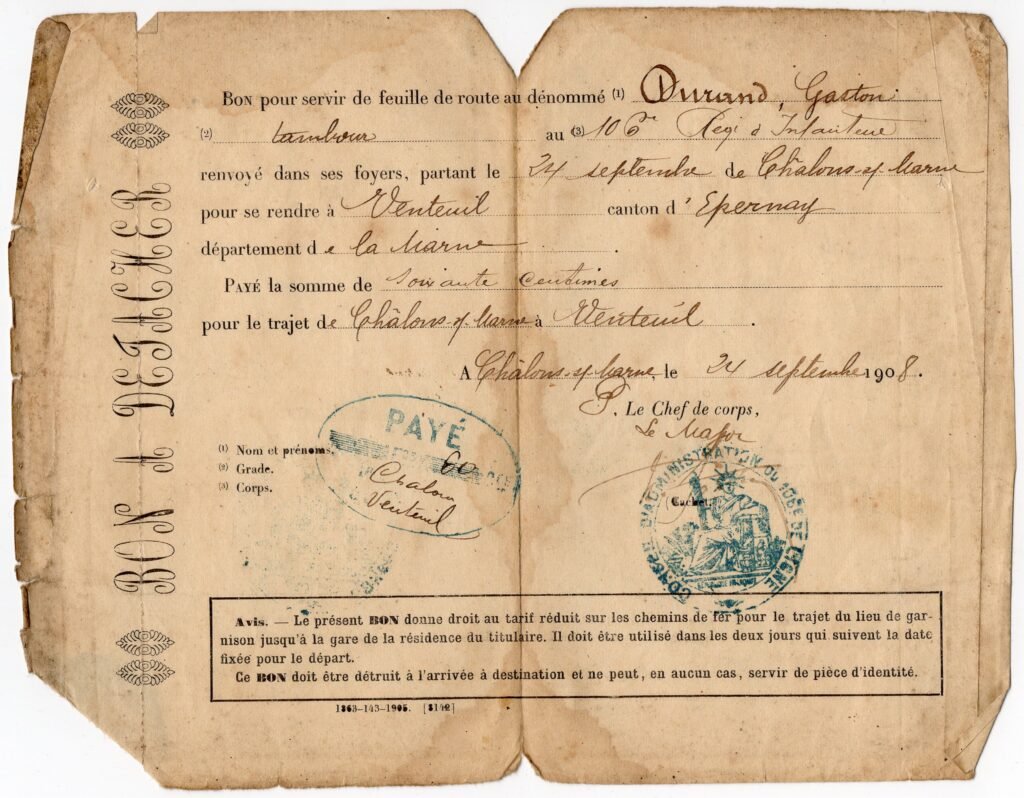 BON A DETACHER
Bon pour servir de feuille de route au dénommé (1) Durand, Gaston
(2) tambour au (3) 106e Regt d'Infanterie
renvoyé dans ses foyers, partant le 24 septembre de Châlons-s/-Marne
pour se rendre à Venteuil canton d'Epernay
département de la Marne
Payé la somme de soixante centimes
pour le trajet de Châlons-s/-Marne à Venteuil.
A Châlons-s/-Marne, le 24 septembre 1908.
P. Le Chef de corps,
Le Major
(1) Nom et prénoms.
(2) Grade.
(3) Corps.
PAYÉ
60
Chalons
Venteuil
Cachet.
CONSEIL D'ADMINISTRATION DU 106E DE LIGNE
Avis. — Le présent BON donne droit au tarif réduit sur les chemins de fer pour le trajet du lieu de gar-
nison jusqu'à la gare de la résidence du titulaire. Il doit être utilisé dans les deux jours qui suivent la date
fixée pour le départ.
Ce BON doit être détruit à l'arrivée à destination et ne peut, en aucun cas, servir de pièce d'identité.
1363-143-1905. [3142]